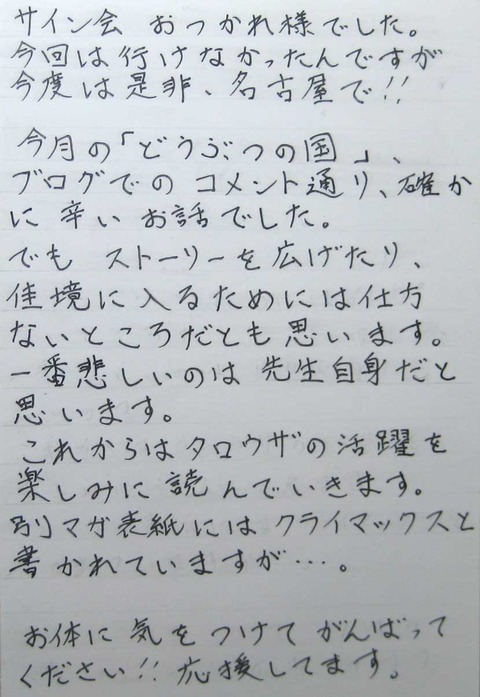 サイン会 おつかれ様でした。
今回は行けなかったんですが
今度は是非、名古屋で!!
今月の「どうぶつの国」、
ブログでの コメント通り、確か
に 辛い お話でした。
でも ストーリーを広げたり、
佳境に入るためには仕方
ないところだとも思います。
一番悲しいのは 先生自身だと
思います。
これからはタロウザの活躍を
楽しみに 読んでいきます。
別マガ表紙には クライマックスと
書かれていますが…。
お体に 気をつけて がんばって
ください!! 応援してます。